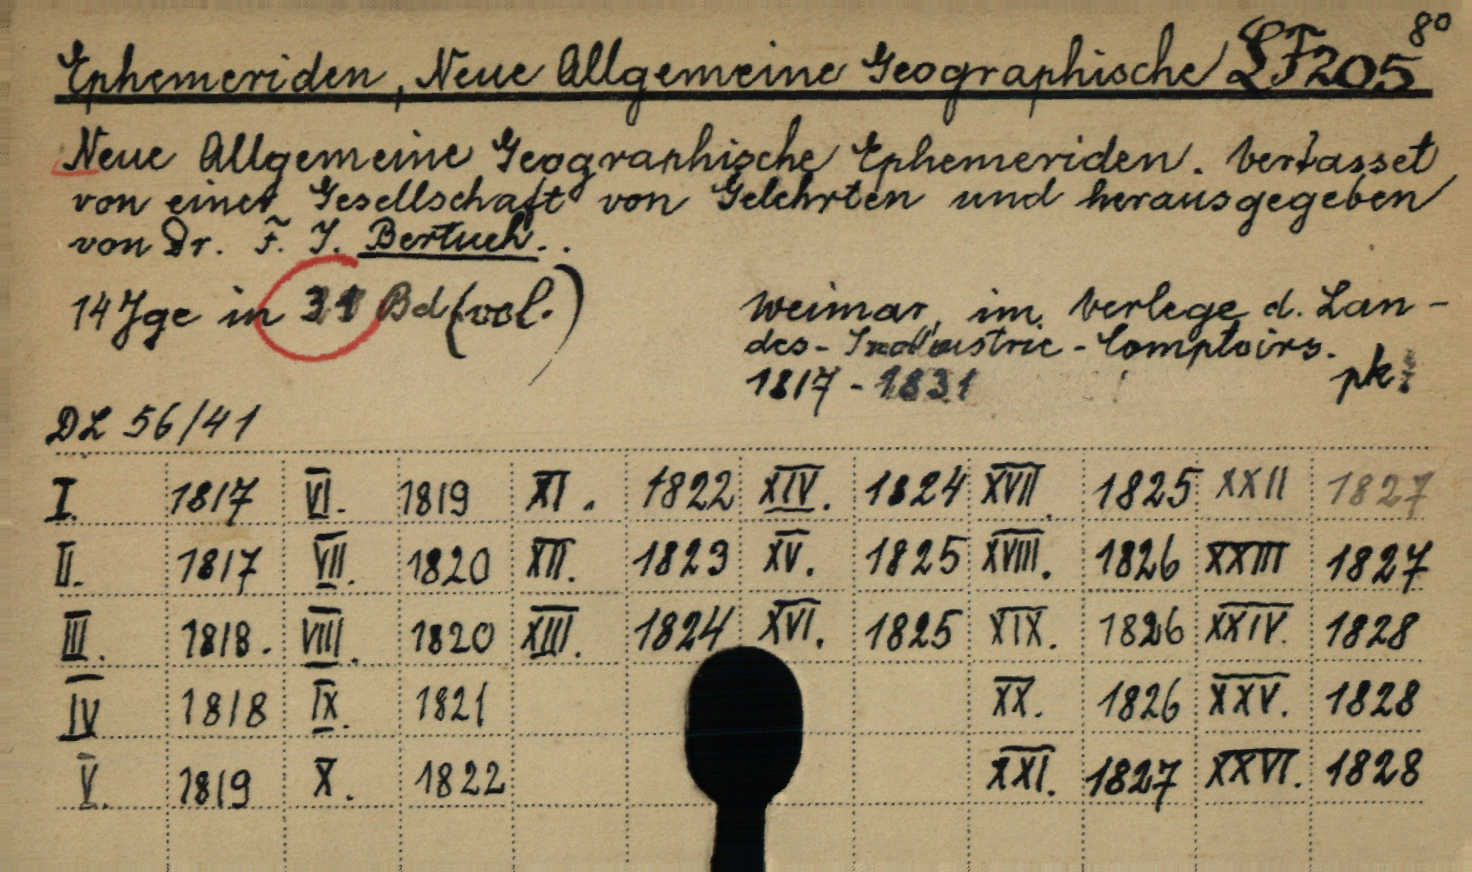 8°
Ephemeriden, Neue Allgemeine Geographische LF205
Neue Allgemeine Geographische Ephemeriden. Verfasset
von einer Gesellschaft von Gelehrten und herausgegeben
von Dr. F. J. Bertuch. .
14 Jge in 31 Bd (vol.)
Weimar, im Verlege d. Lan-
des-Industrie-Comptoirs.
1817 - 1831
pk
DL 56/41
I. 1817 VI. 1819 XI. 1822 XIV. 1824 XVII. 1825 XXII 1827
II. 1817 VII. 1820 XII. 1823 XV. 1825 XVIII. 1826 XXIII 1827
III. 1818. VIII. 1820 XIII. 1824 XVI. 1825 XIX. 1826 XXIV. 1828
IV 1818 IX. 1821 XX. 1826 XXV. 1828
V. 1819 X. 1822 XXI. 1827 XXVI. 1828